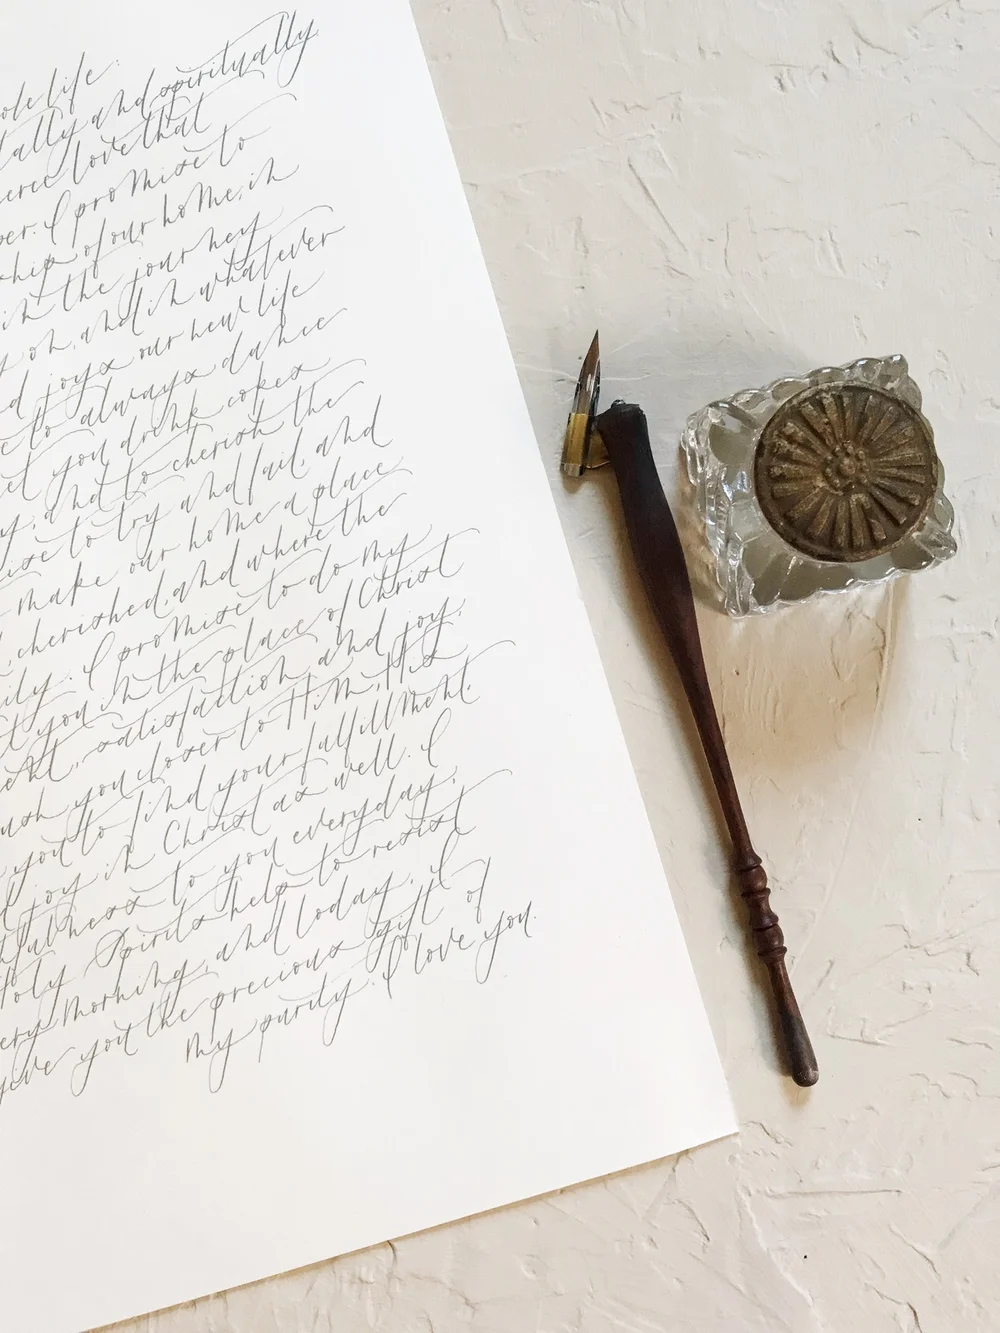 life.
and spiritually
love that
I promise to
of our home, in
in the journey
on, and in whatever
joys our new life
to always dance
you drink cokes
and to cherish the
to try and fail, and
make our home a place
cherished, and where the
I promise to do my
you in the place of Christ
satisfaction and joy,
you closer to Him, His
you to find your fulfillment,
joy in Christ as well. I
to you everyday,
Spirits help to resist
morning, and today, I
you the precious gift of
my purity. I love you.